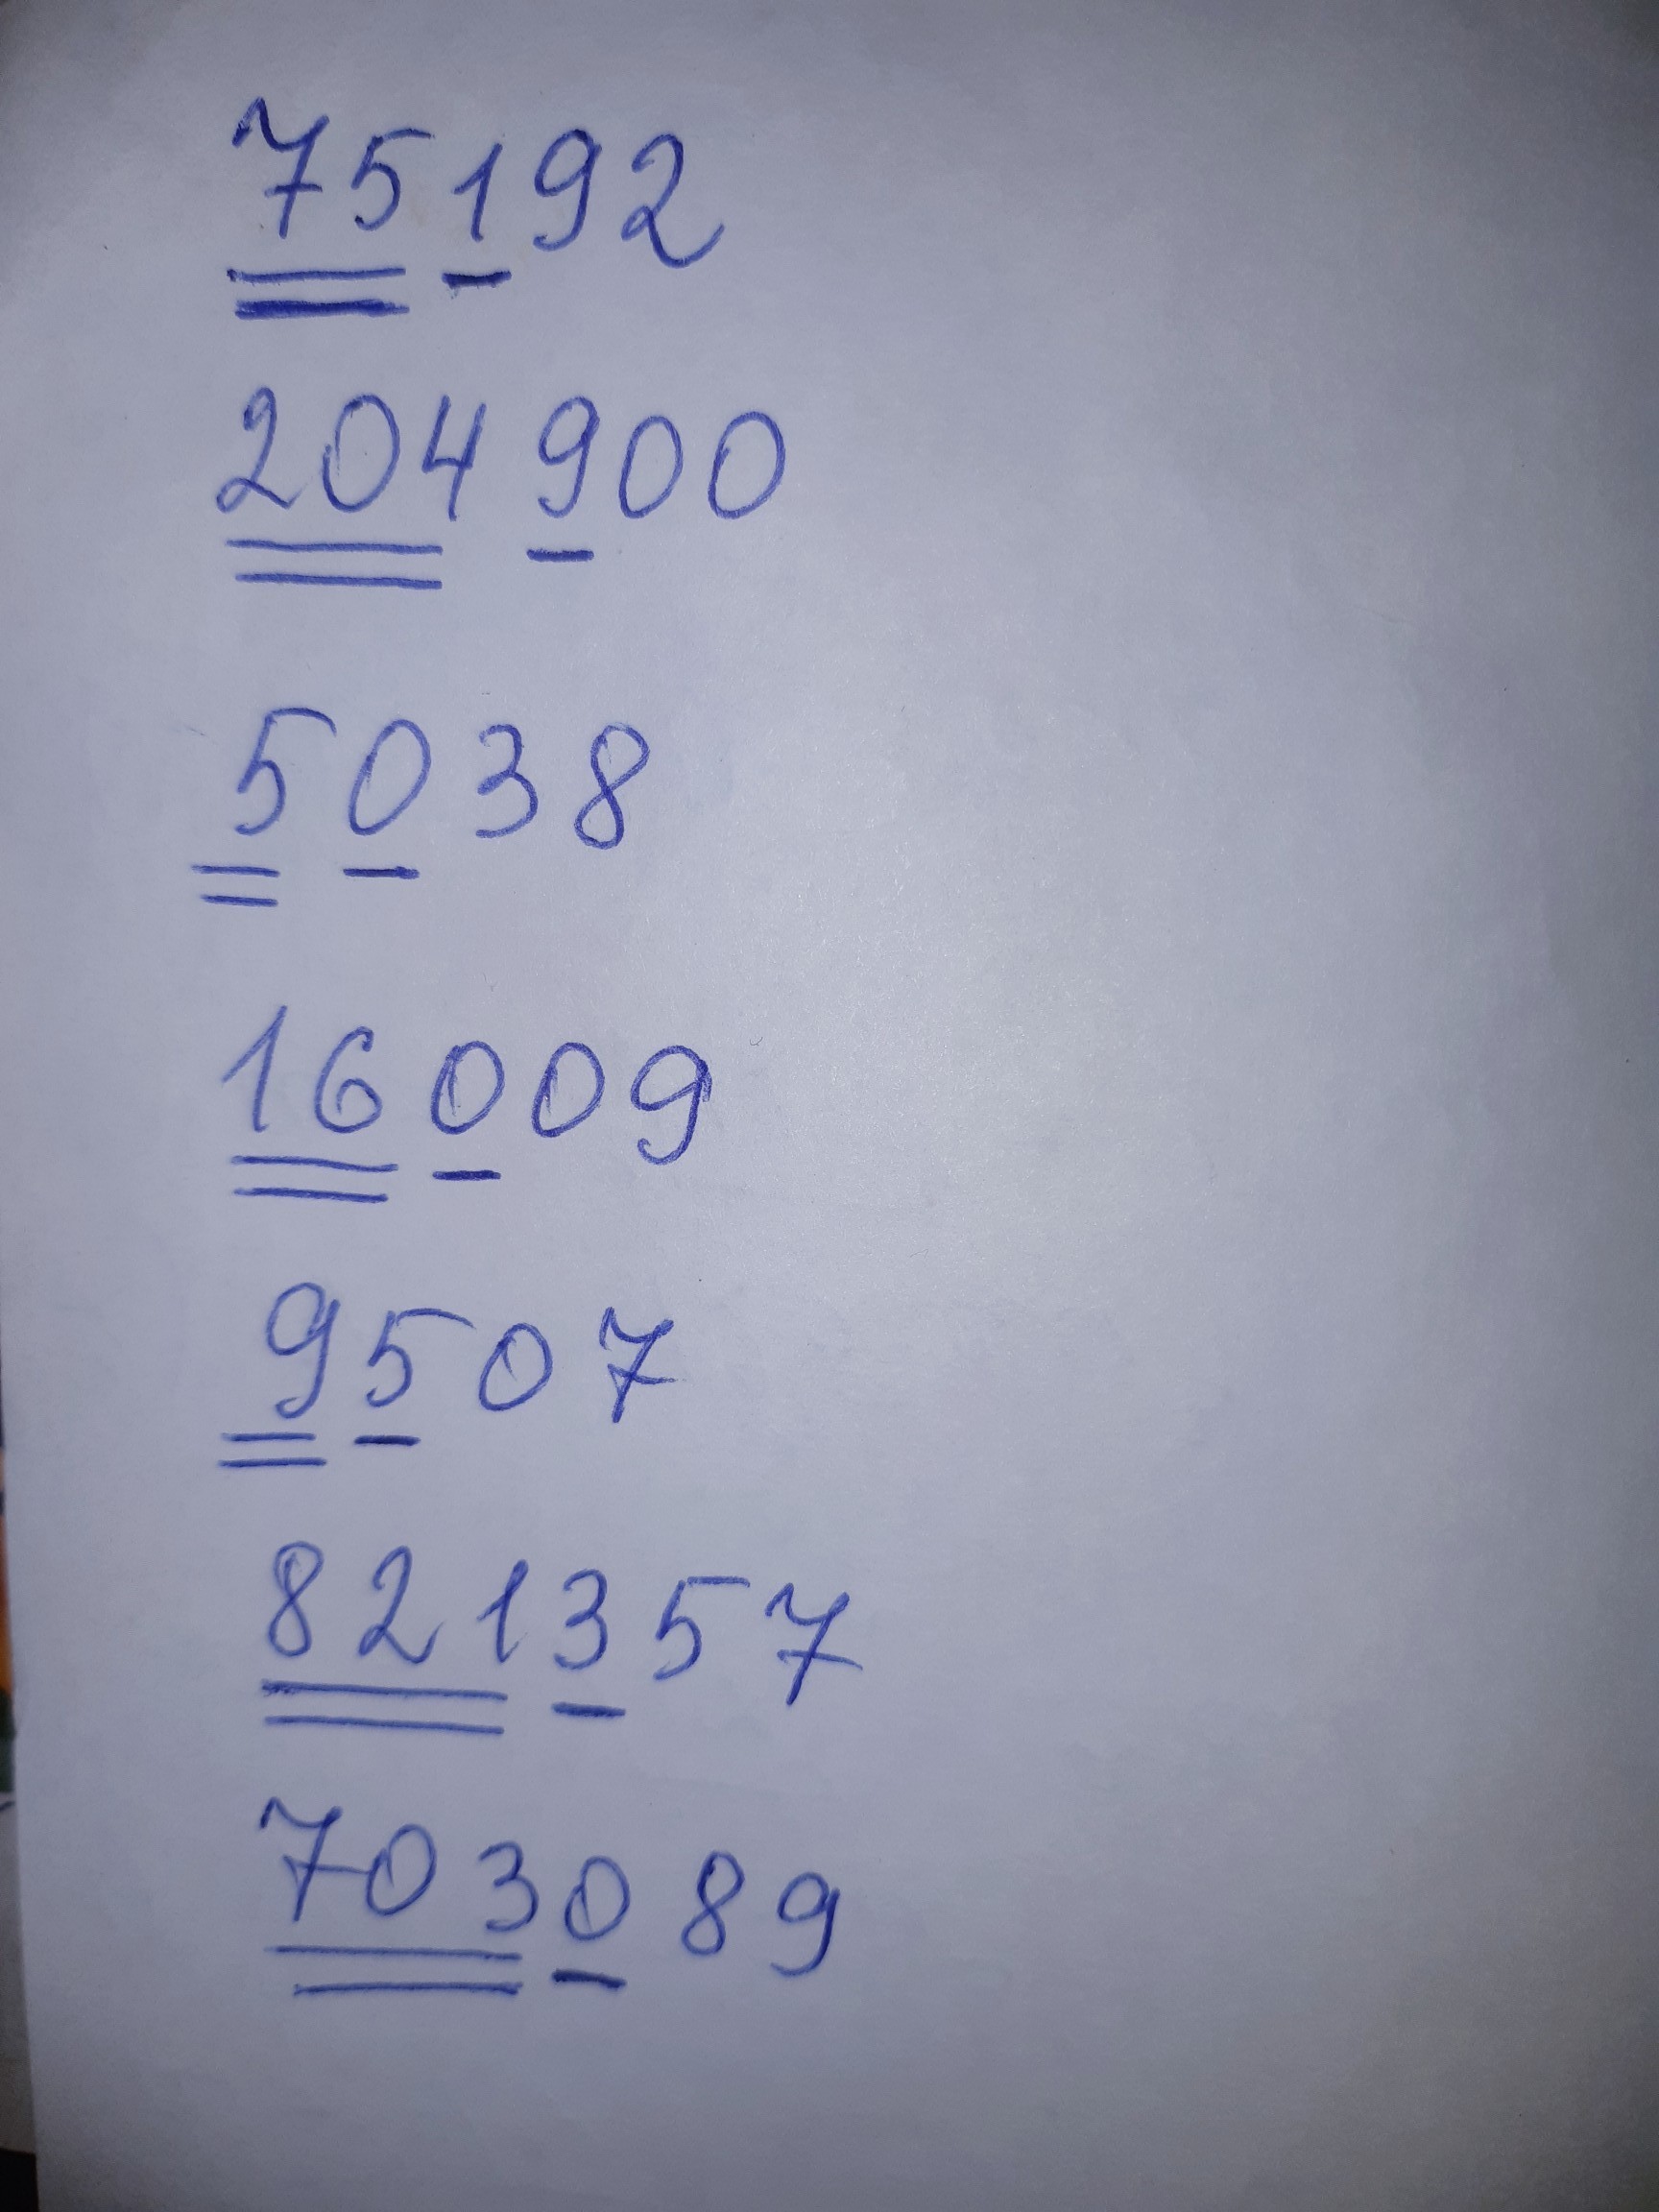 75192
204 900
5038
16009
9507
821357
703089